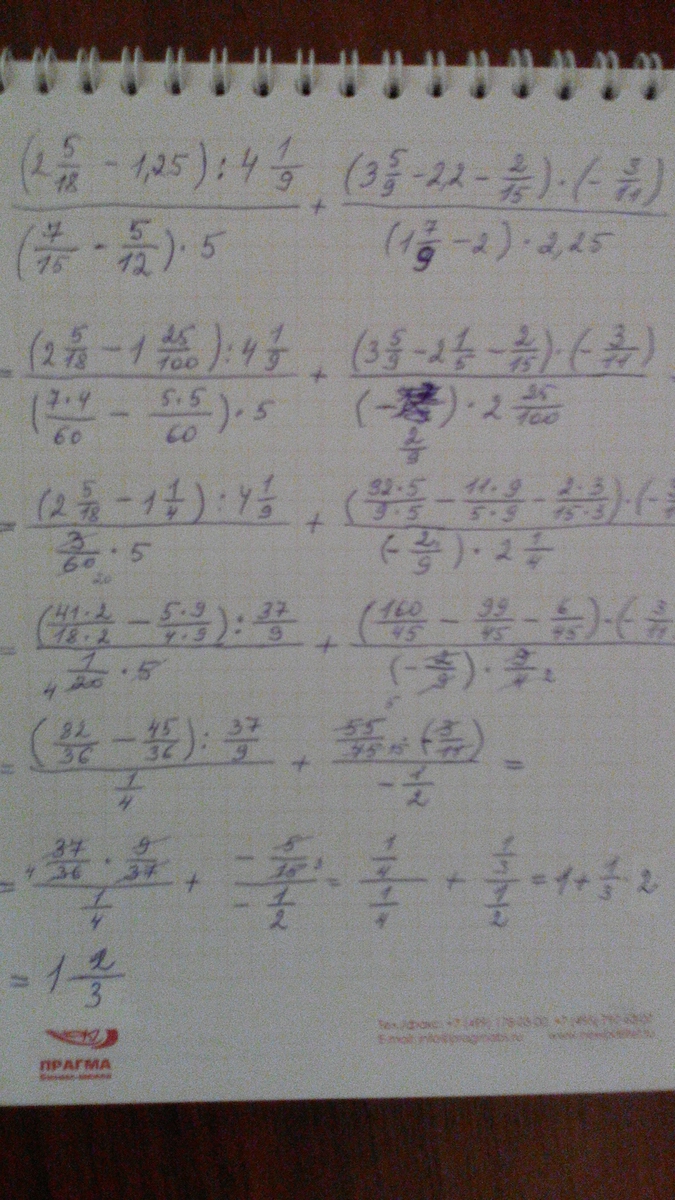 (2 5/18 - 1,25) : 4 1/9 / (7/15 - 5/12) · 5 + (3 5/9 - 2,2 - 2/15) · (- 3/11) / (1 7/9 - 2) · 2,25
= (2 5/18 - 1 25/100) : 4 1/9 / (7·4/60 - 5·5/60) · 5 + (3 5/9 - 2 1/5 - 2/15) · (- 3/11) / (- 2/9) · 2 25/100
= (2 5/18 - 1 1/4) : 4 1/9 / 3/60 20 · 5 + (32·5/9·5 - 11·9/5·9 - 2·3/15·3) · (- 3/11 / (- 2/9) · 2 1/4
= (41·2/18·2 - 5·9/4·9) : 37/9 / 4 1/20 · 5 + (160/45 - 99/45 - 6/45) · (- 3/11 / (- 2/9) · 9/4 2
= (82/36 - 45/36) : 37/9 / 1/4 + 5 55/45 15 · (- 3/11) / - 1/2 =
= 4 37/36 · 9/37 / 1/4 + - 5/15 3 / - 1/2 = 1/4 / 1/4 + 1/3 / 1/2 = 1 + 1/3 · 2
= 1 2/3
ПРАГМА
бизнес-школа
Тел./факс:
E-mail: info@pragmabs.ru